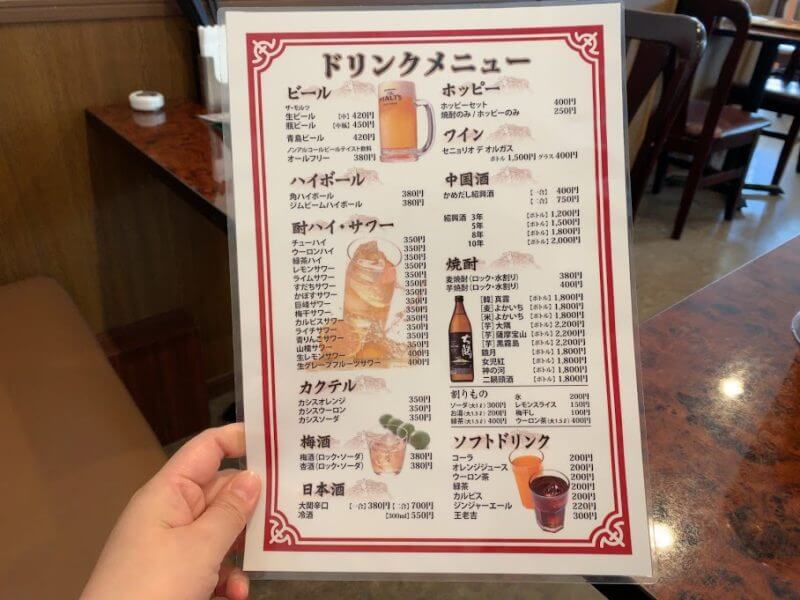 ドリンクメニュー
ビール
ザ・モルツ
生ビール 【中】420円
瓶ビール 【中瓶】450円
青島ビール 420円
ノンアルコールビールテイスト飲料
オールフリー 380円
ハイボール
角ハイボール 380円
ジムビームハイボール 380円
酎ハイ・サワー
チューハイ 350円
ウーロンハイ 350円
緑茶ハイ 350円
レモンサワー 350円
ライムサワー 350円
すだちサワー 350円
かぼすサワー 350円
巨峰サワー 350円
梅干サワー 350円
カルピスサワー 350円
ライチサワー 350円
青りんごサワー 350円
山楂サワー 350円
生レモンサワー 400円
生グレープフルーツサワー 400円
カクテル
カシスオレンジ 350円
カシスウーロン 350円
カシスソーダ 350円
梅酒
梅酒(ロック・ソーダ) 380円
杏酒(ロック・ソーダ) 380円
日本酒
大関辛口 【一合】380円【二合】700円
冷酒 【300ml】550円
ホッピー
ホッピーセット 400円
焼酎のみ / ホッピーのみ 250円
ワイン
セニョリオ デ オルガス
ボトル 1,500円 グラス 400円
中国酒
かめだし紹興酒 【一合】 400円
【二合】 750円
紹興酒 3年 【ボトル】1,200円
5年 【ボトル】1,500円
8年 【ボトル】1,800円
10年 【ボトル】2,000円
焼酎
麦焼酎(ロック・水割り) 380円
芋焼酎(ロック・水割り) 400円
[韓]真露 【ボトル】1,800円
[麦]よかいち 【ボトル】1,800円
[米]よかいち 【ボトル】1,800円
[芋]大隅 【ボトル】2,200円
[芋]薩摩宝山 【ボトル】2,200円
[芋]黒霧島 【ボトル】2,200円
銀月 【ボトル】1,800円
女児紅 【ボトル】1,800円
神の河 【ボトル】1,800円
二鍋頭酒 【ボトル】1,800円
割りもの
ソーダ(大1.5ℓ) 300円
お湯(大1.5ℓ) 200円
緑茶(大1.5ℓ) 400円
氷 200円
レモンスライス 150円
梅干し 100円
ウーロン茶(大1.5ℓ) 400円
ソフトドリンク
コーラ 200円
オレンジジュース 200円
ウーロン茶 200円
緑茶 200円
カルピス 200円
ジンジャーエール 220円
王老吉 300円
MALT'S
大隅